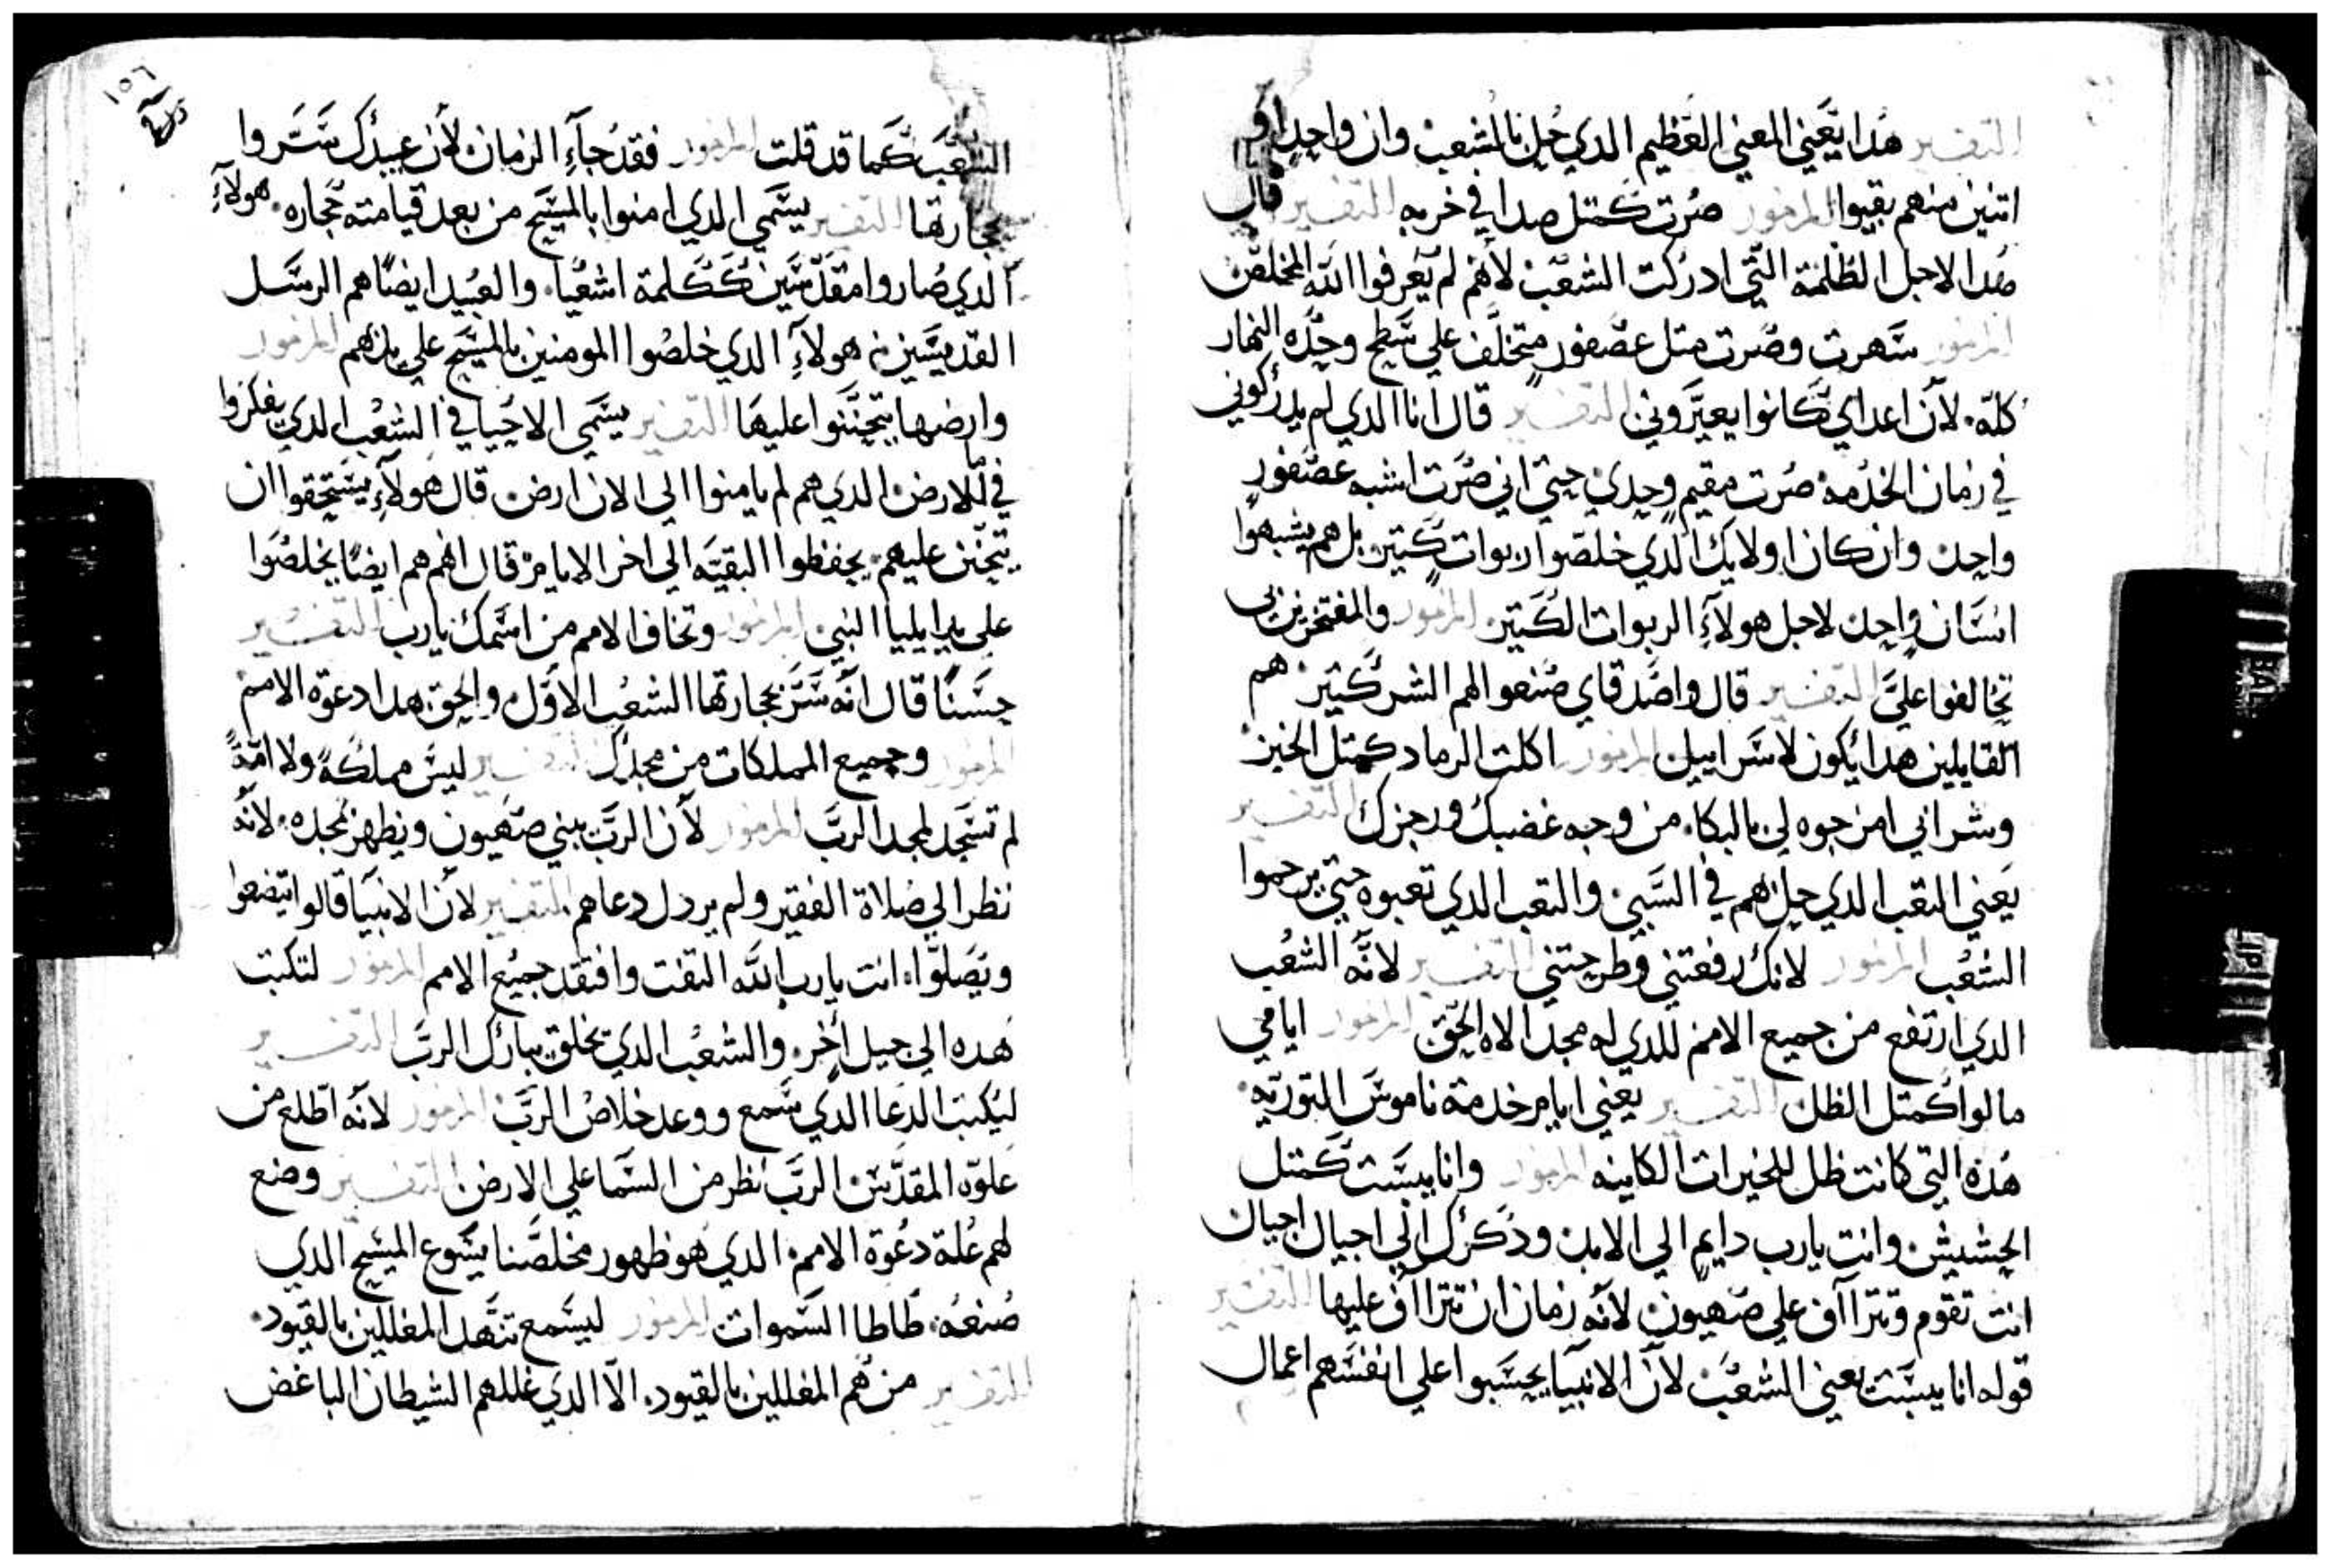 التفسير هدا يعني المعني العظيم الدي حل بالشعب وان واحد او
اتنين منهم بقيوا المزمور صرت كمتل صدا في خربه التفسير قال
هدا لاجل الظلمة التي ادركت الشعب لانهم لم يعرفوا الله المخلص
المزمور سهرت وصرت متل عصفور متخلف علي سطح وحده النهار
كله لان اعداي كانوا يعيروني التفسير قال انا الدي لم يدركوني
في زمان الخدمة صرت مقيم وحدي حتي اني صرت اشبه عصفور
واحد وان كان اولايك الدي خلصوا ربوات كتير بل هم يشبهوا
انسان واحد لاجل هولاء الربوات الكتير المزمور والمفتخرين بي
تحالفوا علي التفسير قال واصدقاي صنعوا لهم الشر كتير هم
القايلين هدا يكون لاسراييل المزمور اكلت الرماد كمتل الخبز
وشرابي امزجوه لي بالبكاء من وجه غضبك ورجزك التفسير
يعني التعب الدي حل بهم في السبي والتعب الدي تعبوه حتي يرحموا
الشعب المزمور لانك رفعتني وطرحتني التفسير لانه الشعب
الدي ارتفع من جميع الامم للدي له مجد الاه الحق المزمور ايامي
مالوا كمتل الظل التفسير يعني ايام خدمة ناموس التوريه
هده التي كانت ظل للخيرات الكاينه المزمور وانا يبست كمتل
الحشيش وانت يارب دايم الي الابد ودكرك الي اجيال اجيال
انت تقوم وتتراآف علي صهيون لانه زمان ان تتراآف عليها التفسير
قوله انا يبست يعني الشعب لان الانبيا يحسبوا علي انفسهم اعمال
الشعب كما قد قلت المزمور فقد جآء الزمان لان عبيدك ستروا
بحجارتها التفسير يسمي الدي امنوا بالمسيح من بعد قيامته حجاره هولآء
الدي صاروا مقدسين ككلمة اشعيا والعبيد ايضا هم الرسل
القديسين هولآء الدي خلصوا المومنين بالمسيح علي يدهم المزمور
وارضها يتحننوا عليها التفسير يسمي الاحيا في الشعب الدي يفكروا
في الارض الدي هم لم يامنوا الي الان ارض قال هولآء يستحقوا ان
يتحنن عليهم يحفظوا البقيه الي اخر الايام قال انهم هم ايضا يخلصوا
علي يد ايليا النبي المزمور وتخاف الامم من اسمك يارب التفسير
حسنا قال انه ستر بحجارتها الشعب الاول والحق هدا دعوة الامم
المزمور وجميع المملكات من مجدك التفسير ليس مملكة ولا امة
لم تسجد لمجد الرب المزمور لان الرب يبني صهيون ويظهر بمجده لانه
نظر الي صلاة الفقير ولم يردل دعاهم التفسير لان الانبيا قالوا يتضعوا
ويصلوا انت يارب الله التفت وافتقد جميع الامم المزمور لتكتب
هده الي جيل اخر والشعب الدي يخلق يبارك الرب التفسير
ليكتب الدعا الدي سمع ووعد خلاص الرب المزمور لانه اطلع من
علوه المقدس الرب نظر من السما علي الارض التفسير وضع
لهم علة دعوة الامم الدي هو ظهور مخلصنا يسوع المسيح الدي
صنعه طاطا السموات المزمور ليسمع تنهد المغللين بالقيود
التفسير من هم المغللين بالقيود الا الدي غللهم الشيطان الباغض